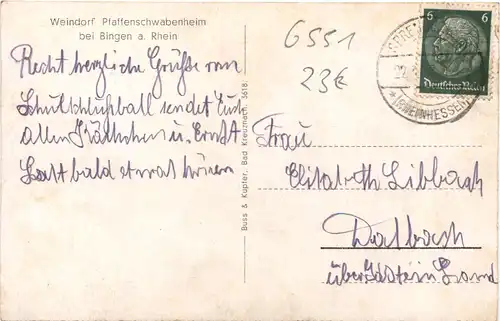 Weindorf Pfaffenschwabenheim
bei Bingen a. Rhein
6551
23€
Recht herzliche Grüße vom
Schulschlußball sendet Euch
allen Käthchen u. Ernst
Lasst bald etwas hören
Buss & Kupfer, Bad Kreuznach. 3618.
6 6
Deutsches Reich
(RHEINHESSEN)
Frau
Elisabeth Libbach
Dasbach
über Idstein Land